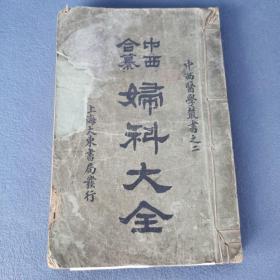 中西醫學叢書之二
中西合纂
婦科大全
上海大東書局發行